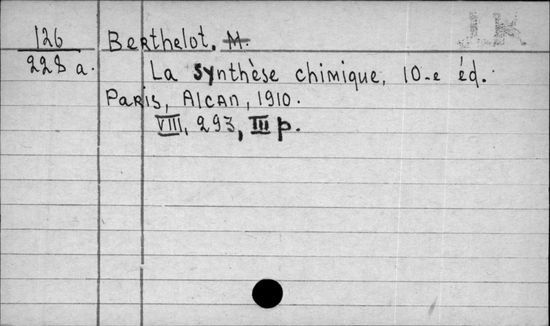 J.K
126
228 a.
Berthelot. M.
La synthèse chimique, 10-e éd.
Paris, Alcan, 1910.
VIII, 293, III p.